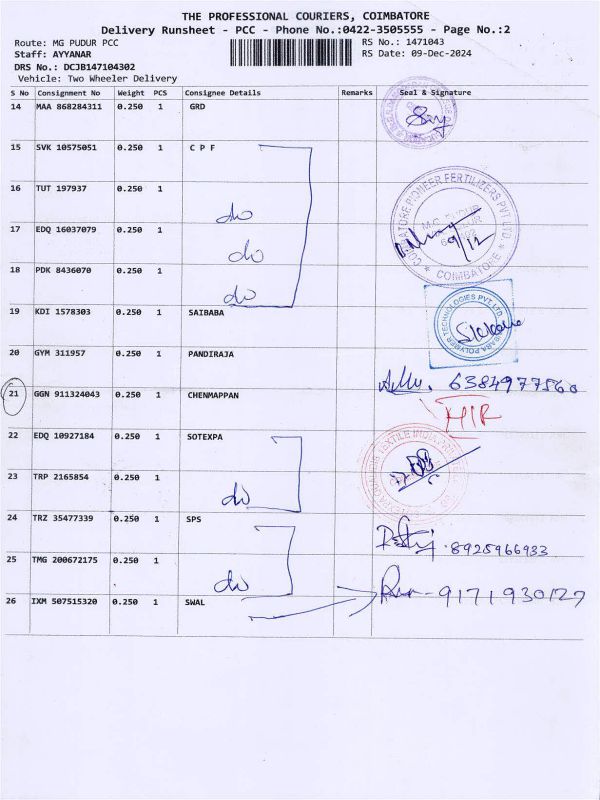 THE PROFESSIONAL COURIERS, COIMBATORE
Delivery Runsheet - PCC - Phone No.:0422-3505555 - Page No.:2
Route: MG PUDUR PCC RS No.: 1471043
Staff: AYYANAR RS Date: 09-Dec-2024
DRS No.: DCJB147104302
Vehicle: Two Wheeler Delivery
S No Consignment No Weight PCS Consignee Details Remarks Seal & Signature
14 MAA 868284311 0.250 1 GRD
15 SVK 10575051 0.250 1 C P F
16 TUT 197937 0.250 1 do
17 EDQ 16037079 0.250 1 do
18 PDK 8436070 0.250 1 do
COIMBATORE PIONEER FERTILIZERS PVT LTD
COIMBATORE
9/12
19 KDI 1578303 0.250 1 SAIBABA
POLYMER TECHNOLOGIES PVT. LTD
20 GYM 311957 0.250 1 PANDIRAJA 6384977560
21 GGN 911324043 0.250 1 CHENMAPPAN
22 EDQ 10927184 0.250 1 SOTEXPA
TEXTILE INDIA
23 TRP 2165854 0.250 1 do
24 TRZ 35477339 0.250 1 SPS 8925966933
25 TMG 200672175 0.250 1 do
26 IXM 507515320 0.250 1 SWAL 9171930127